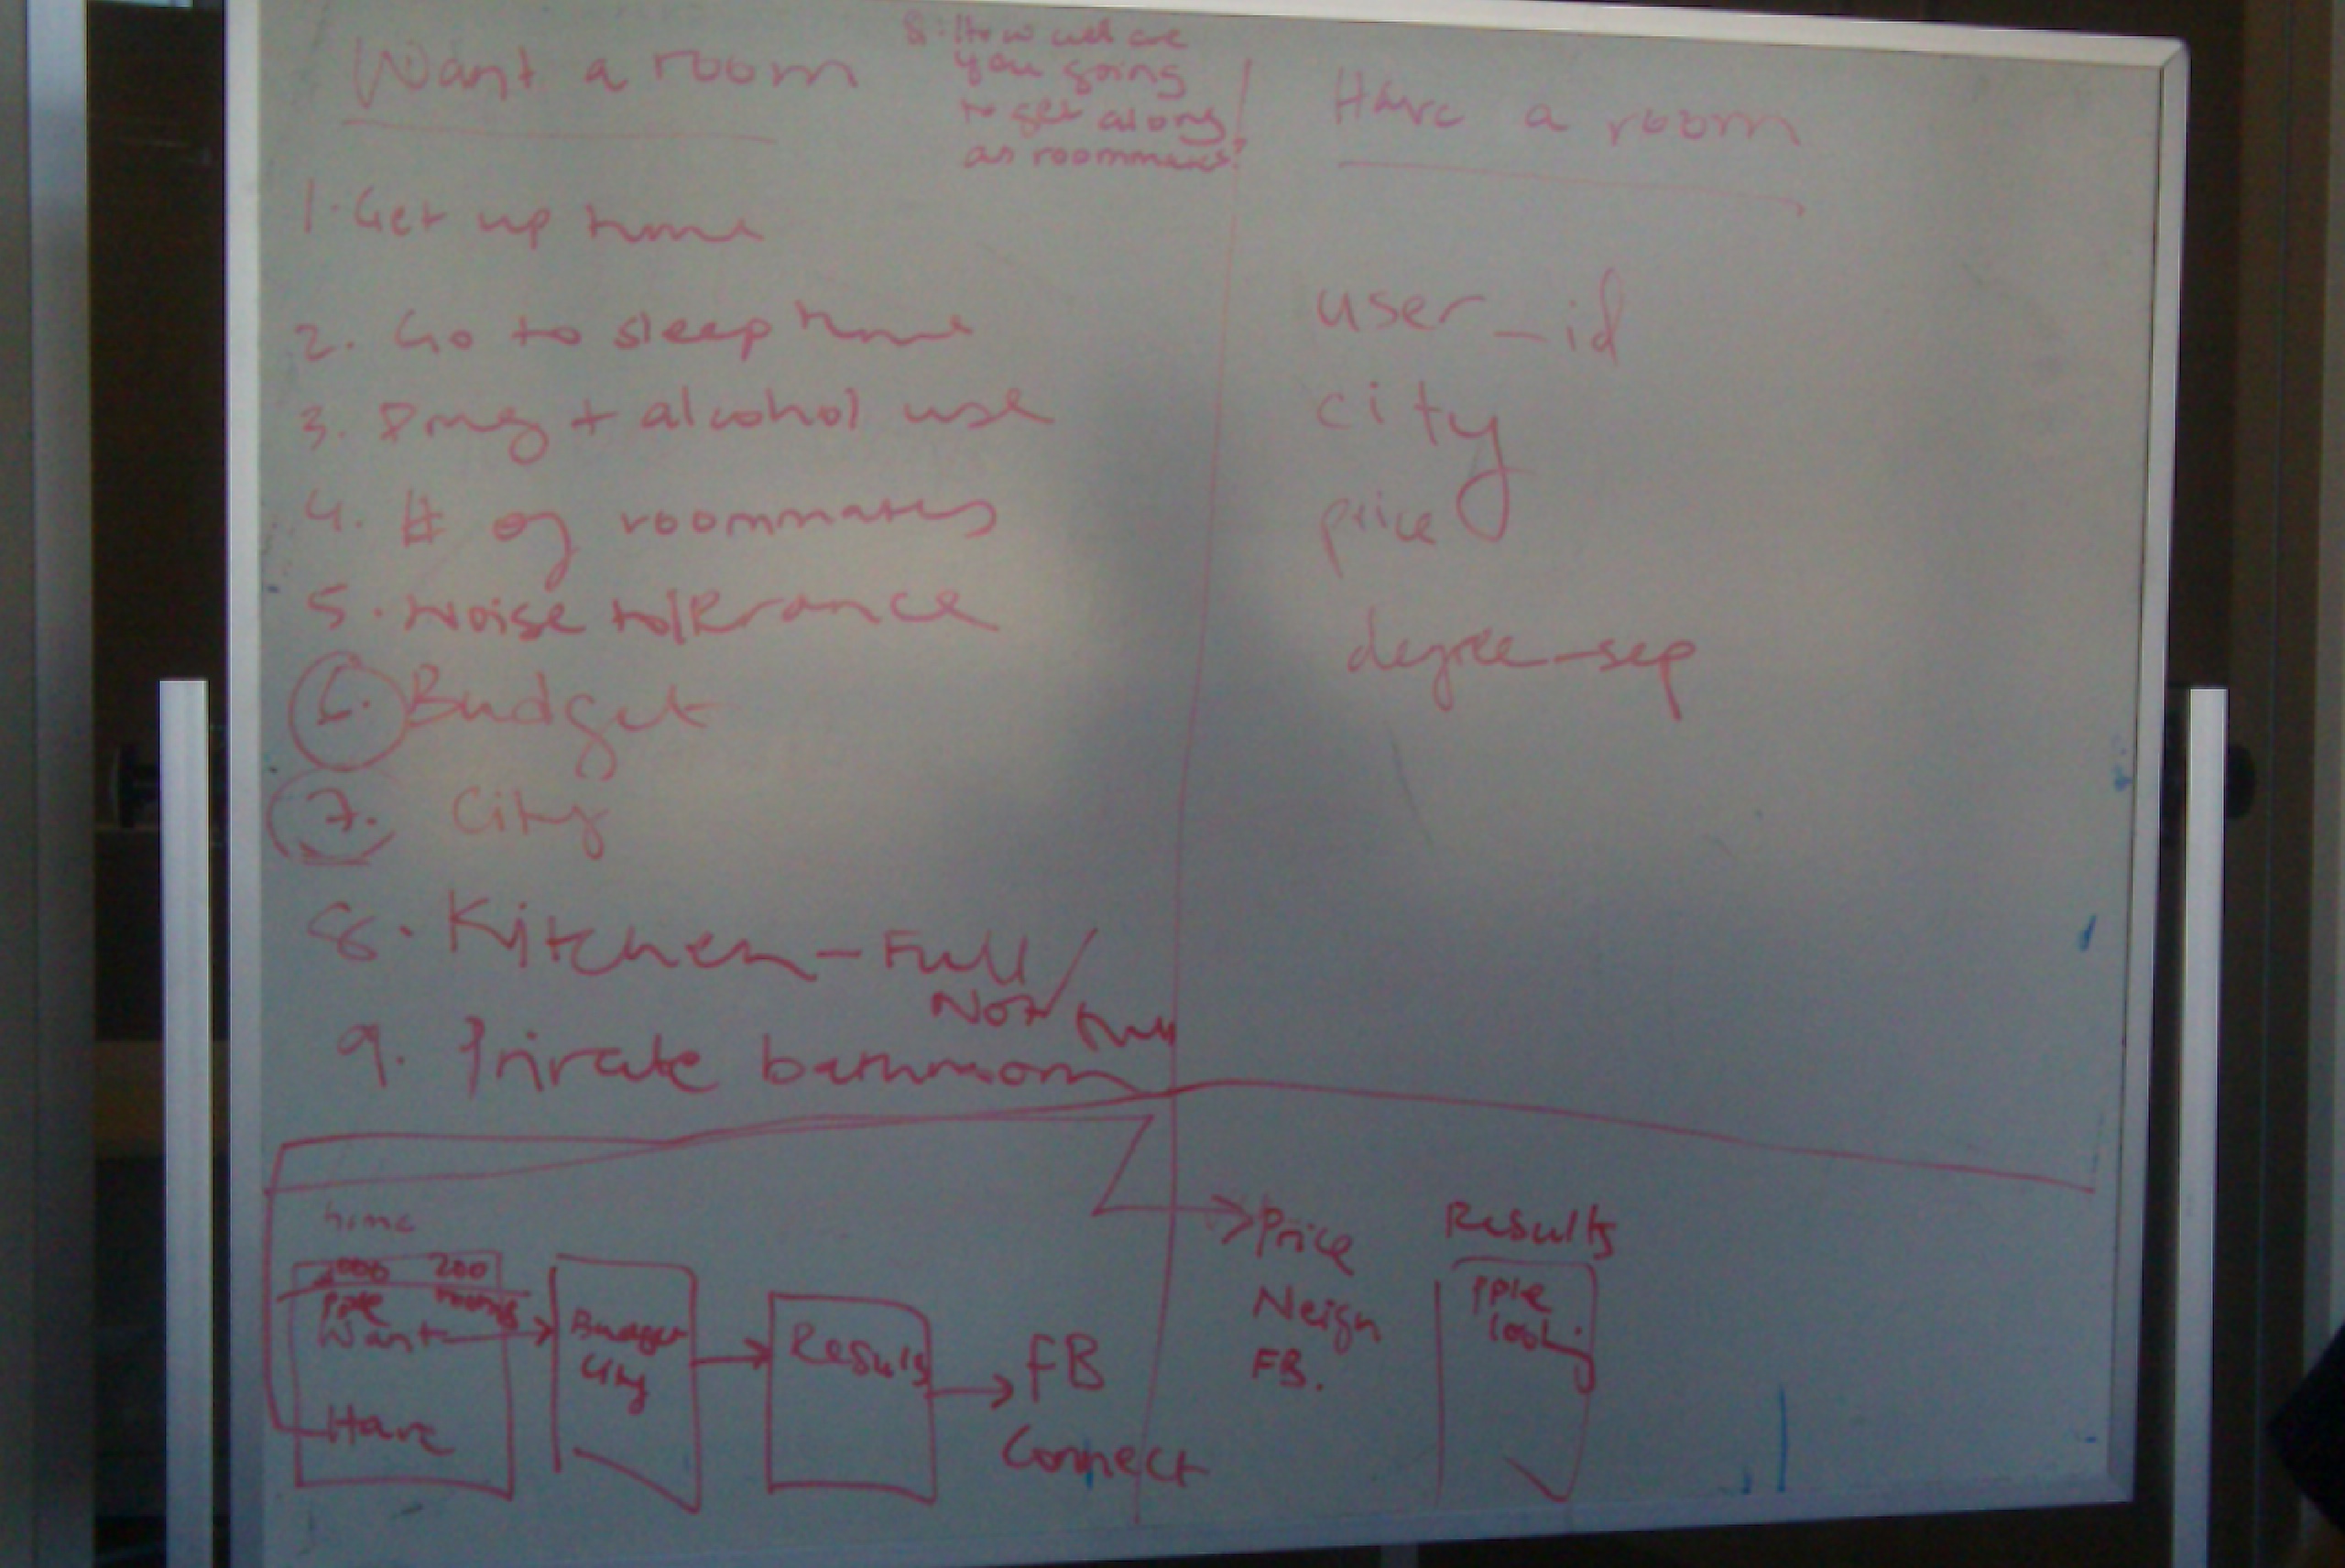 Want a room
8. How well are
you going
to get along
as roommates?
1. Get up time
2. Go to sleep time
3. Drug + alcohol use
4. # of roommates
5. Noise tolerance
6. Budget
7. City
8. Kitchen - Full /
Not full
9. Private bathroom
Have a room
user_id
city
price
degree_sep
home
000 200
pple rooms
Want
Have
Budget
City
Results
FB
Connect
Price
Neigh
FB.
Results
pple
looking